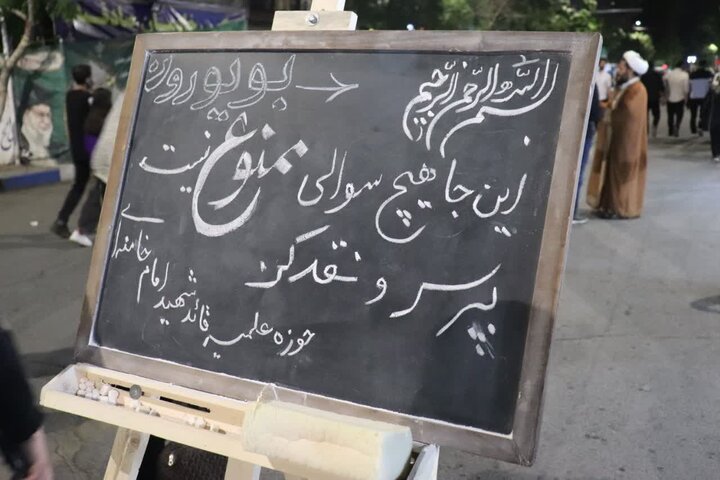 بسم الله الرحمن الرحیم
این جا هیچ سوالی ممنوع نیست
بپرس و نقد کن
حوزه علمیه قائد شهید امام خامنه‌ای